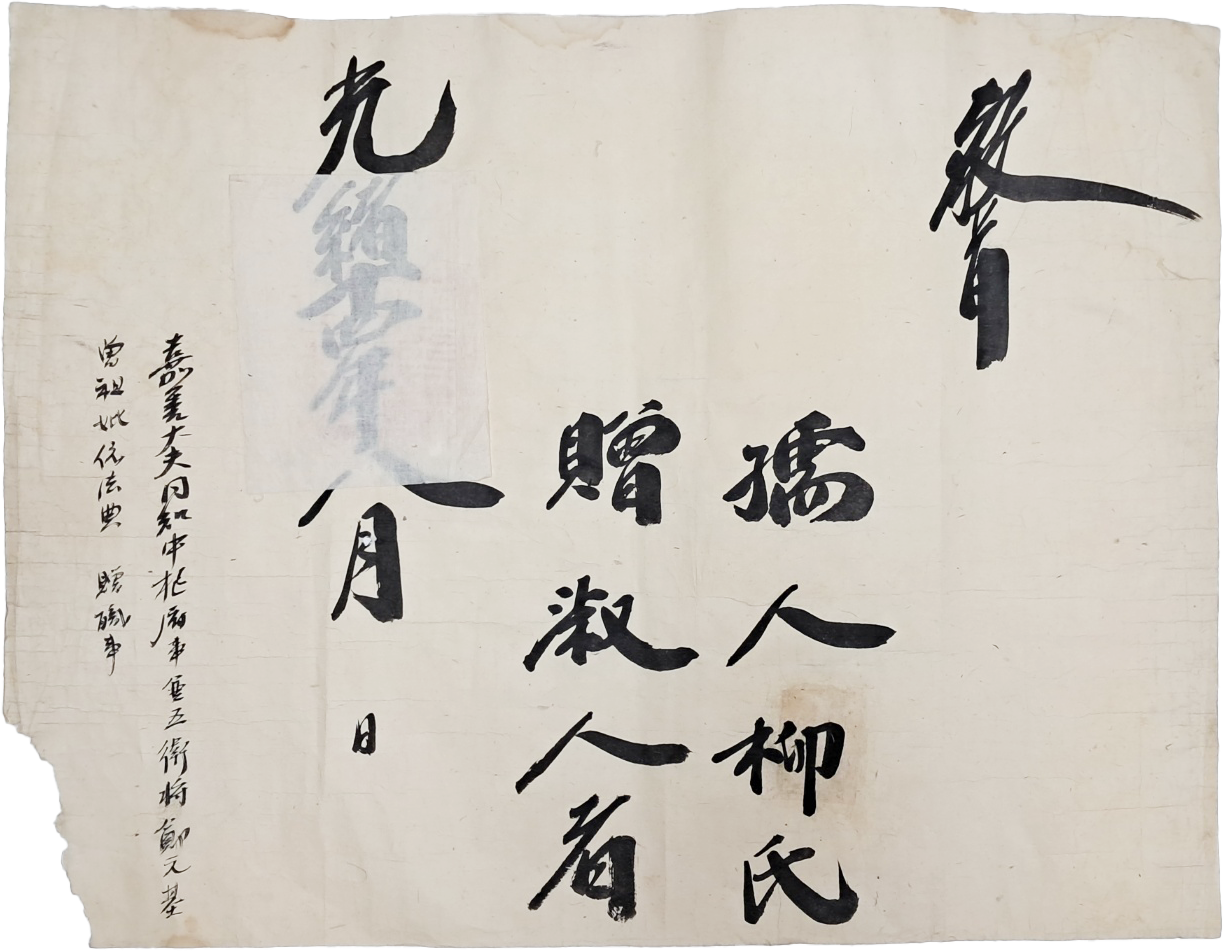 敎旨
孺人柳氏
贈淑人者
光緖十四年八月 日
嘉善大夫同知中樞府事兼五衛將鄭元基
曾祖妣依法典 贈職事